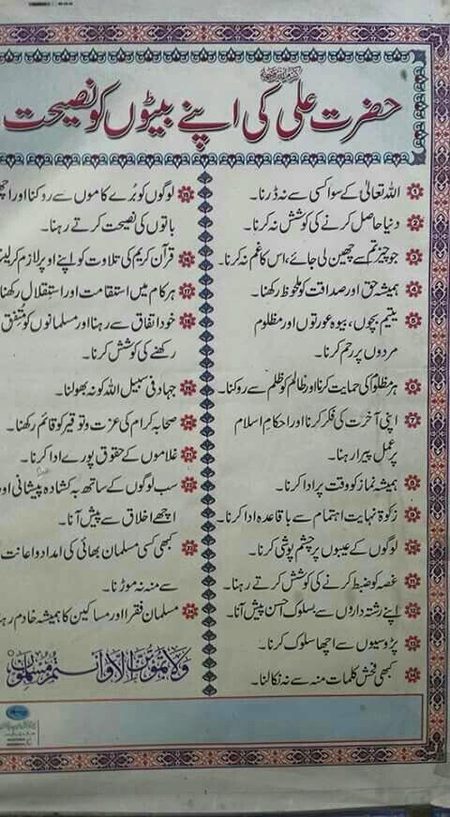 حضرت علیؓ کی اپنے بیٹوں کو نصیحت
اللہ تعالیٰ کے سوا کسی سے نہ ڈرنا۔
دنیا حاصل کرنے کی کوشش نہ کرنا۔
جو چیز تم سے چھین لی جائے، اس کا غم نہ کرنا۔
ہمیشہ حق اور صداقت کو ملحوظ رکھنا۔
یتیم بچوں، بیوہ عورتوں اور مظلوم
مردوں پر رحم کرنا۔
ہر مظلوم کی حمایت کرنا اور ظالم کو ظلم سے روکنا۔
اپنی آخرت کی فکر کرنا اور احکامِ اسلام
پر عمل پیرا رہنا۔
ہمیشہ نماز کو وقت پر ادا کرنا۔
زکوٰۃ نہایت اہتمام سے باقاعدہ ادا کرنا۔
لوگوں کے عیبوں پر چشم پوشی کرنا۔
غصہ کو ضبط کرنے کی کوشش کرتے رہنا۔
اپنے رشتہ داروں سے بسلوک حسن پیش آنا۔
پڑوسیوں سے اچھا سلوک کرنا۔
کبھی فحش کلمات منہ سے نہ نکالنا۔
لوگوں کو بُرے کاموں سے روکنا اور اچھ
باتوں کی نصیحت کرتے رہنا۔
قرآن کریم کی تلاوت کو اپنے اوپر لازم کرلینا
ہر کام میں استقامت اور استقلال رکھنا
خود اتفاق سے رہنا اور مسلمانوں کو متفق
رکھنے کی کوشش کرنا۔
جہاد فی سبیل اللہ کو نہ بھولنا۔
صحابہ کرام کی عزت و توقیر کو قائم رکھنا۔
غلاموں کے حقوق پورے ادا کرنا۔
سب لوگوں کے ساتھ بہ کشادہ پیشانی اور
اچھے اخلاق سے پیش آنا۔
کبھی کسی مسلمان بھائی کی امداد و اعانت
سے منہ نہ موڑنا۔
مسلمان فقرا اور مساکین کا ہمیشہ خادم رہنا
وَلَا تَمُوْتُنَّ اِلَّا وَاَنْتُمْ مُّسْلِمُوْنَ